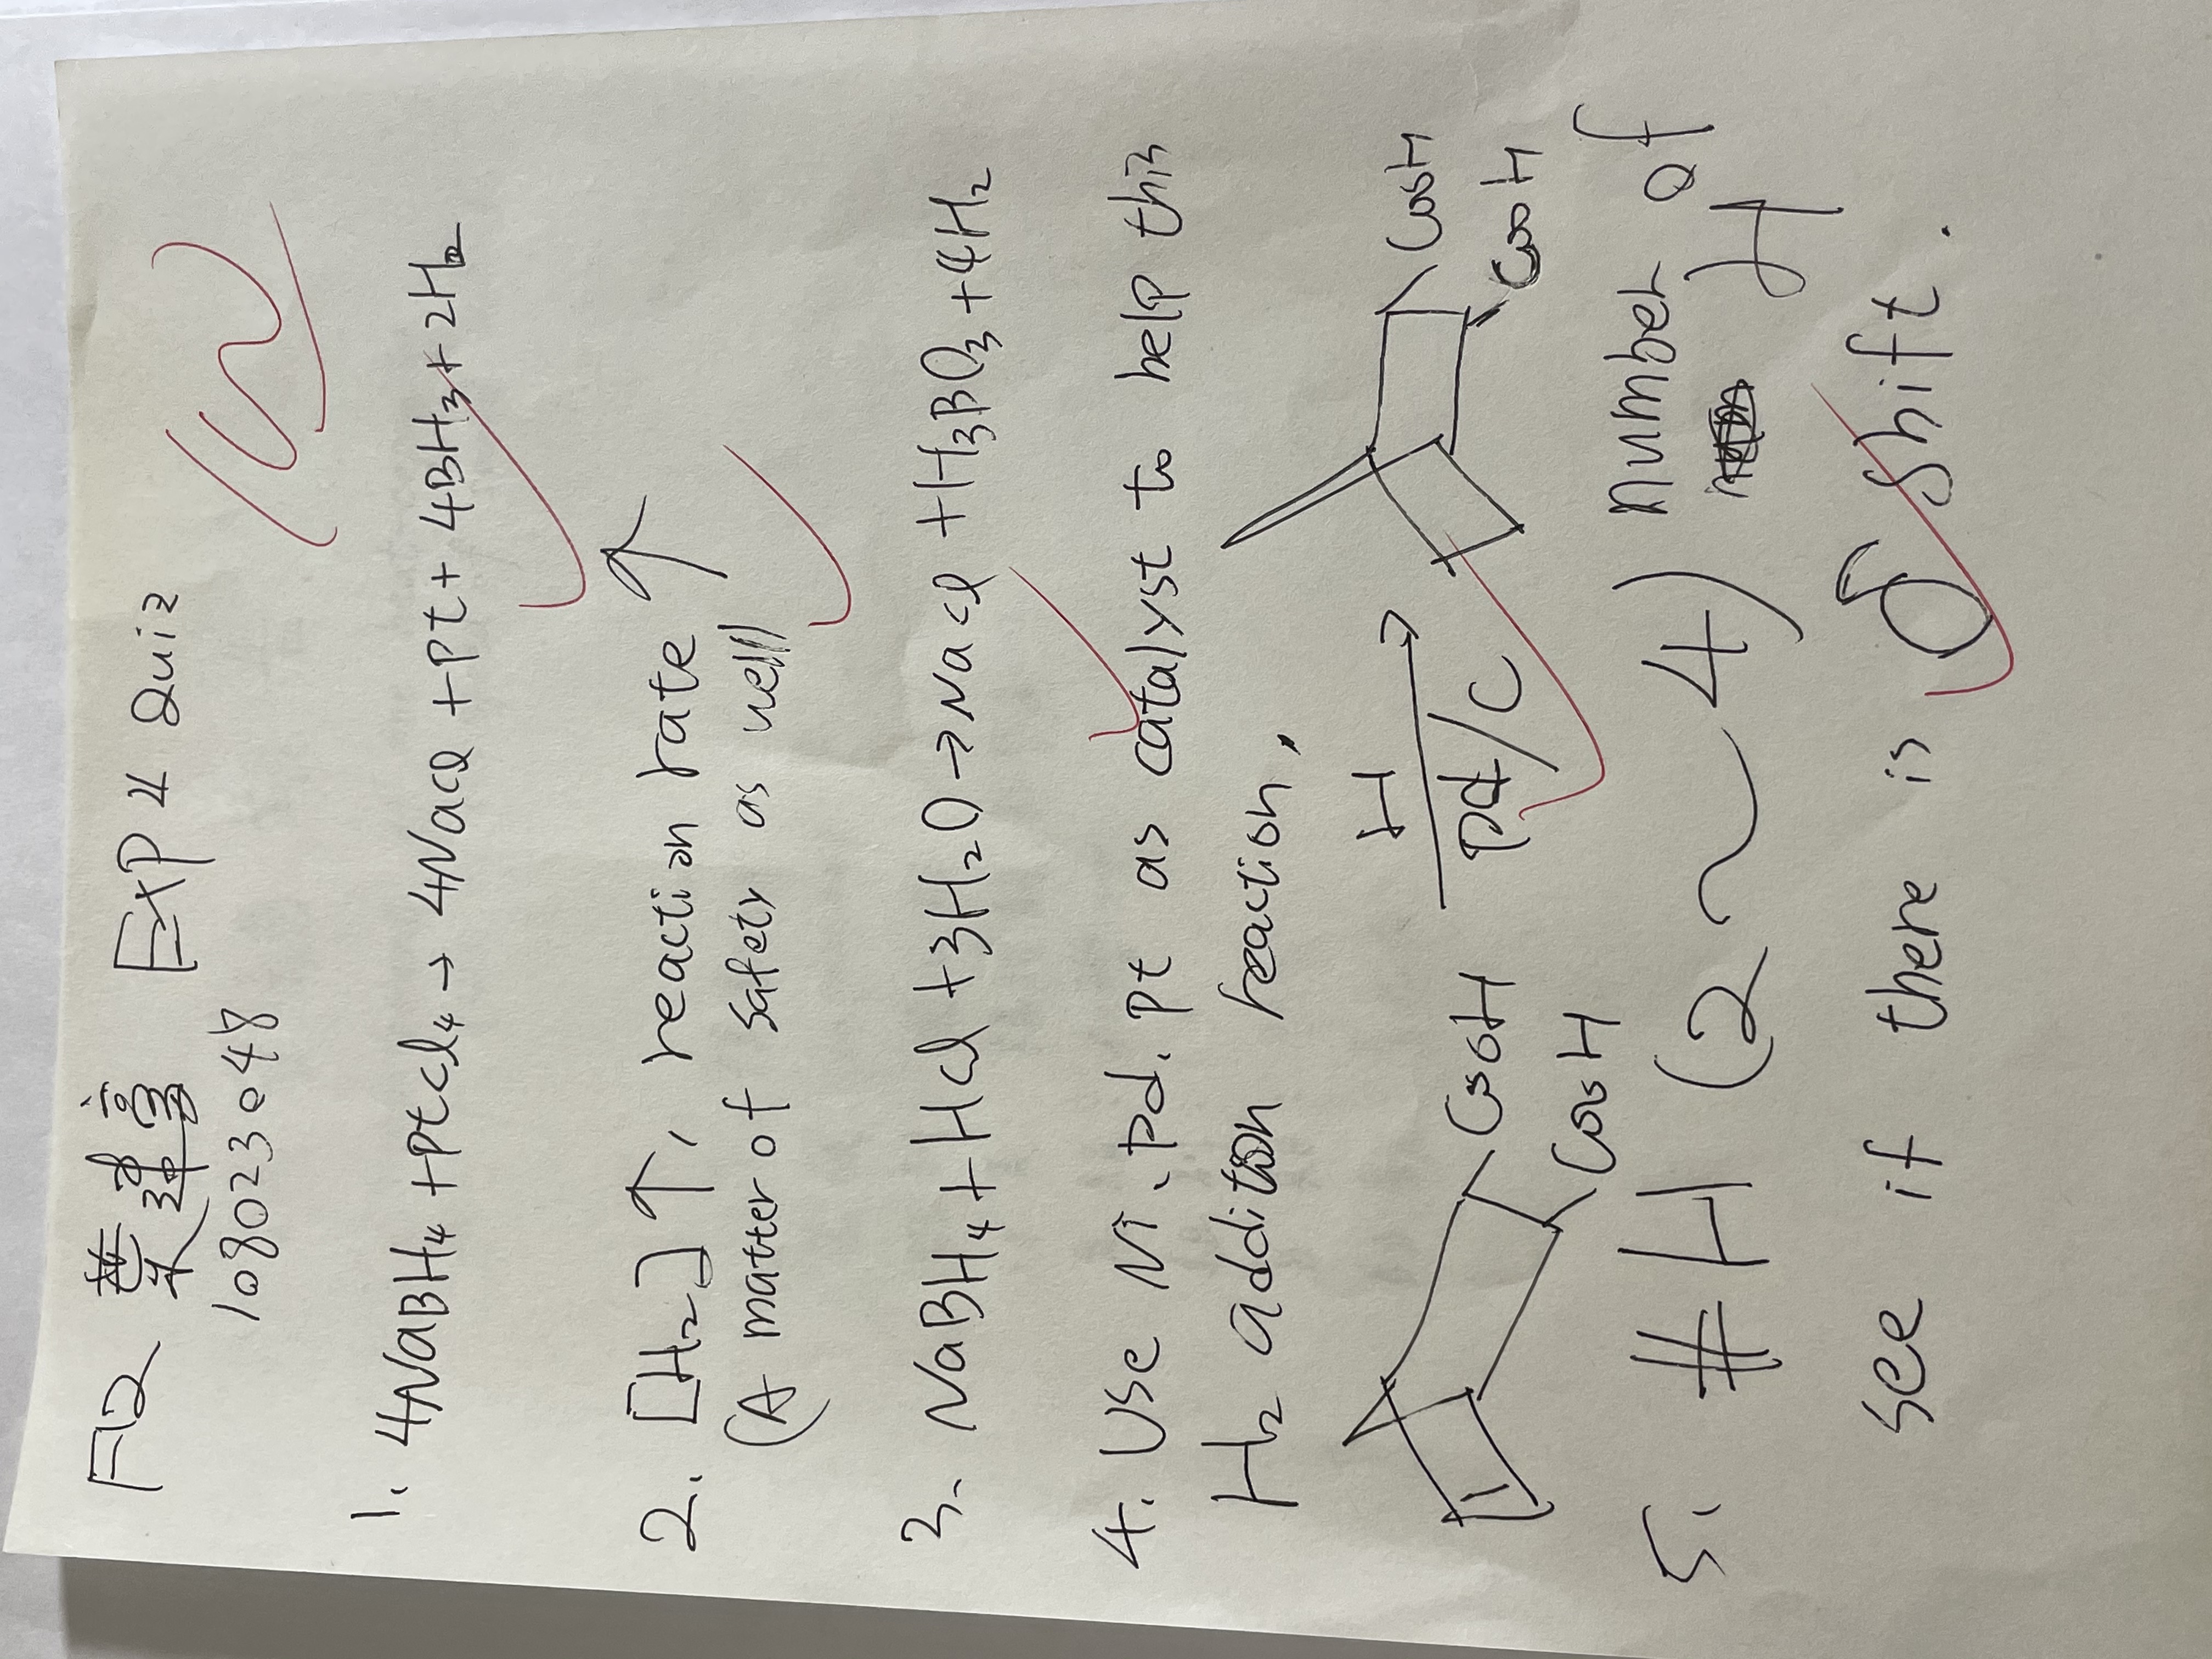 F12 葉建亨 Exp 4 Quiz
108023048
100
1. 4NaBH₄ + ptcl₄ → 4Nacl + pt + 4BH₃ + 2H₂
2. [H₂] ↑, reaction rate ↑
(A matter of safety as well)
3. NaBH₄ + HCl + 3H₂O → Nacl + H₃BO₃ + 4H₂
4. Use Ni、pd、pt as catalyst to help this
H₂ addition reaction.
COOH
COOH
H
pd/C
COOH
COOH
5. #H (2~4) number of H
see if there is δ shift.